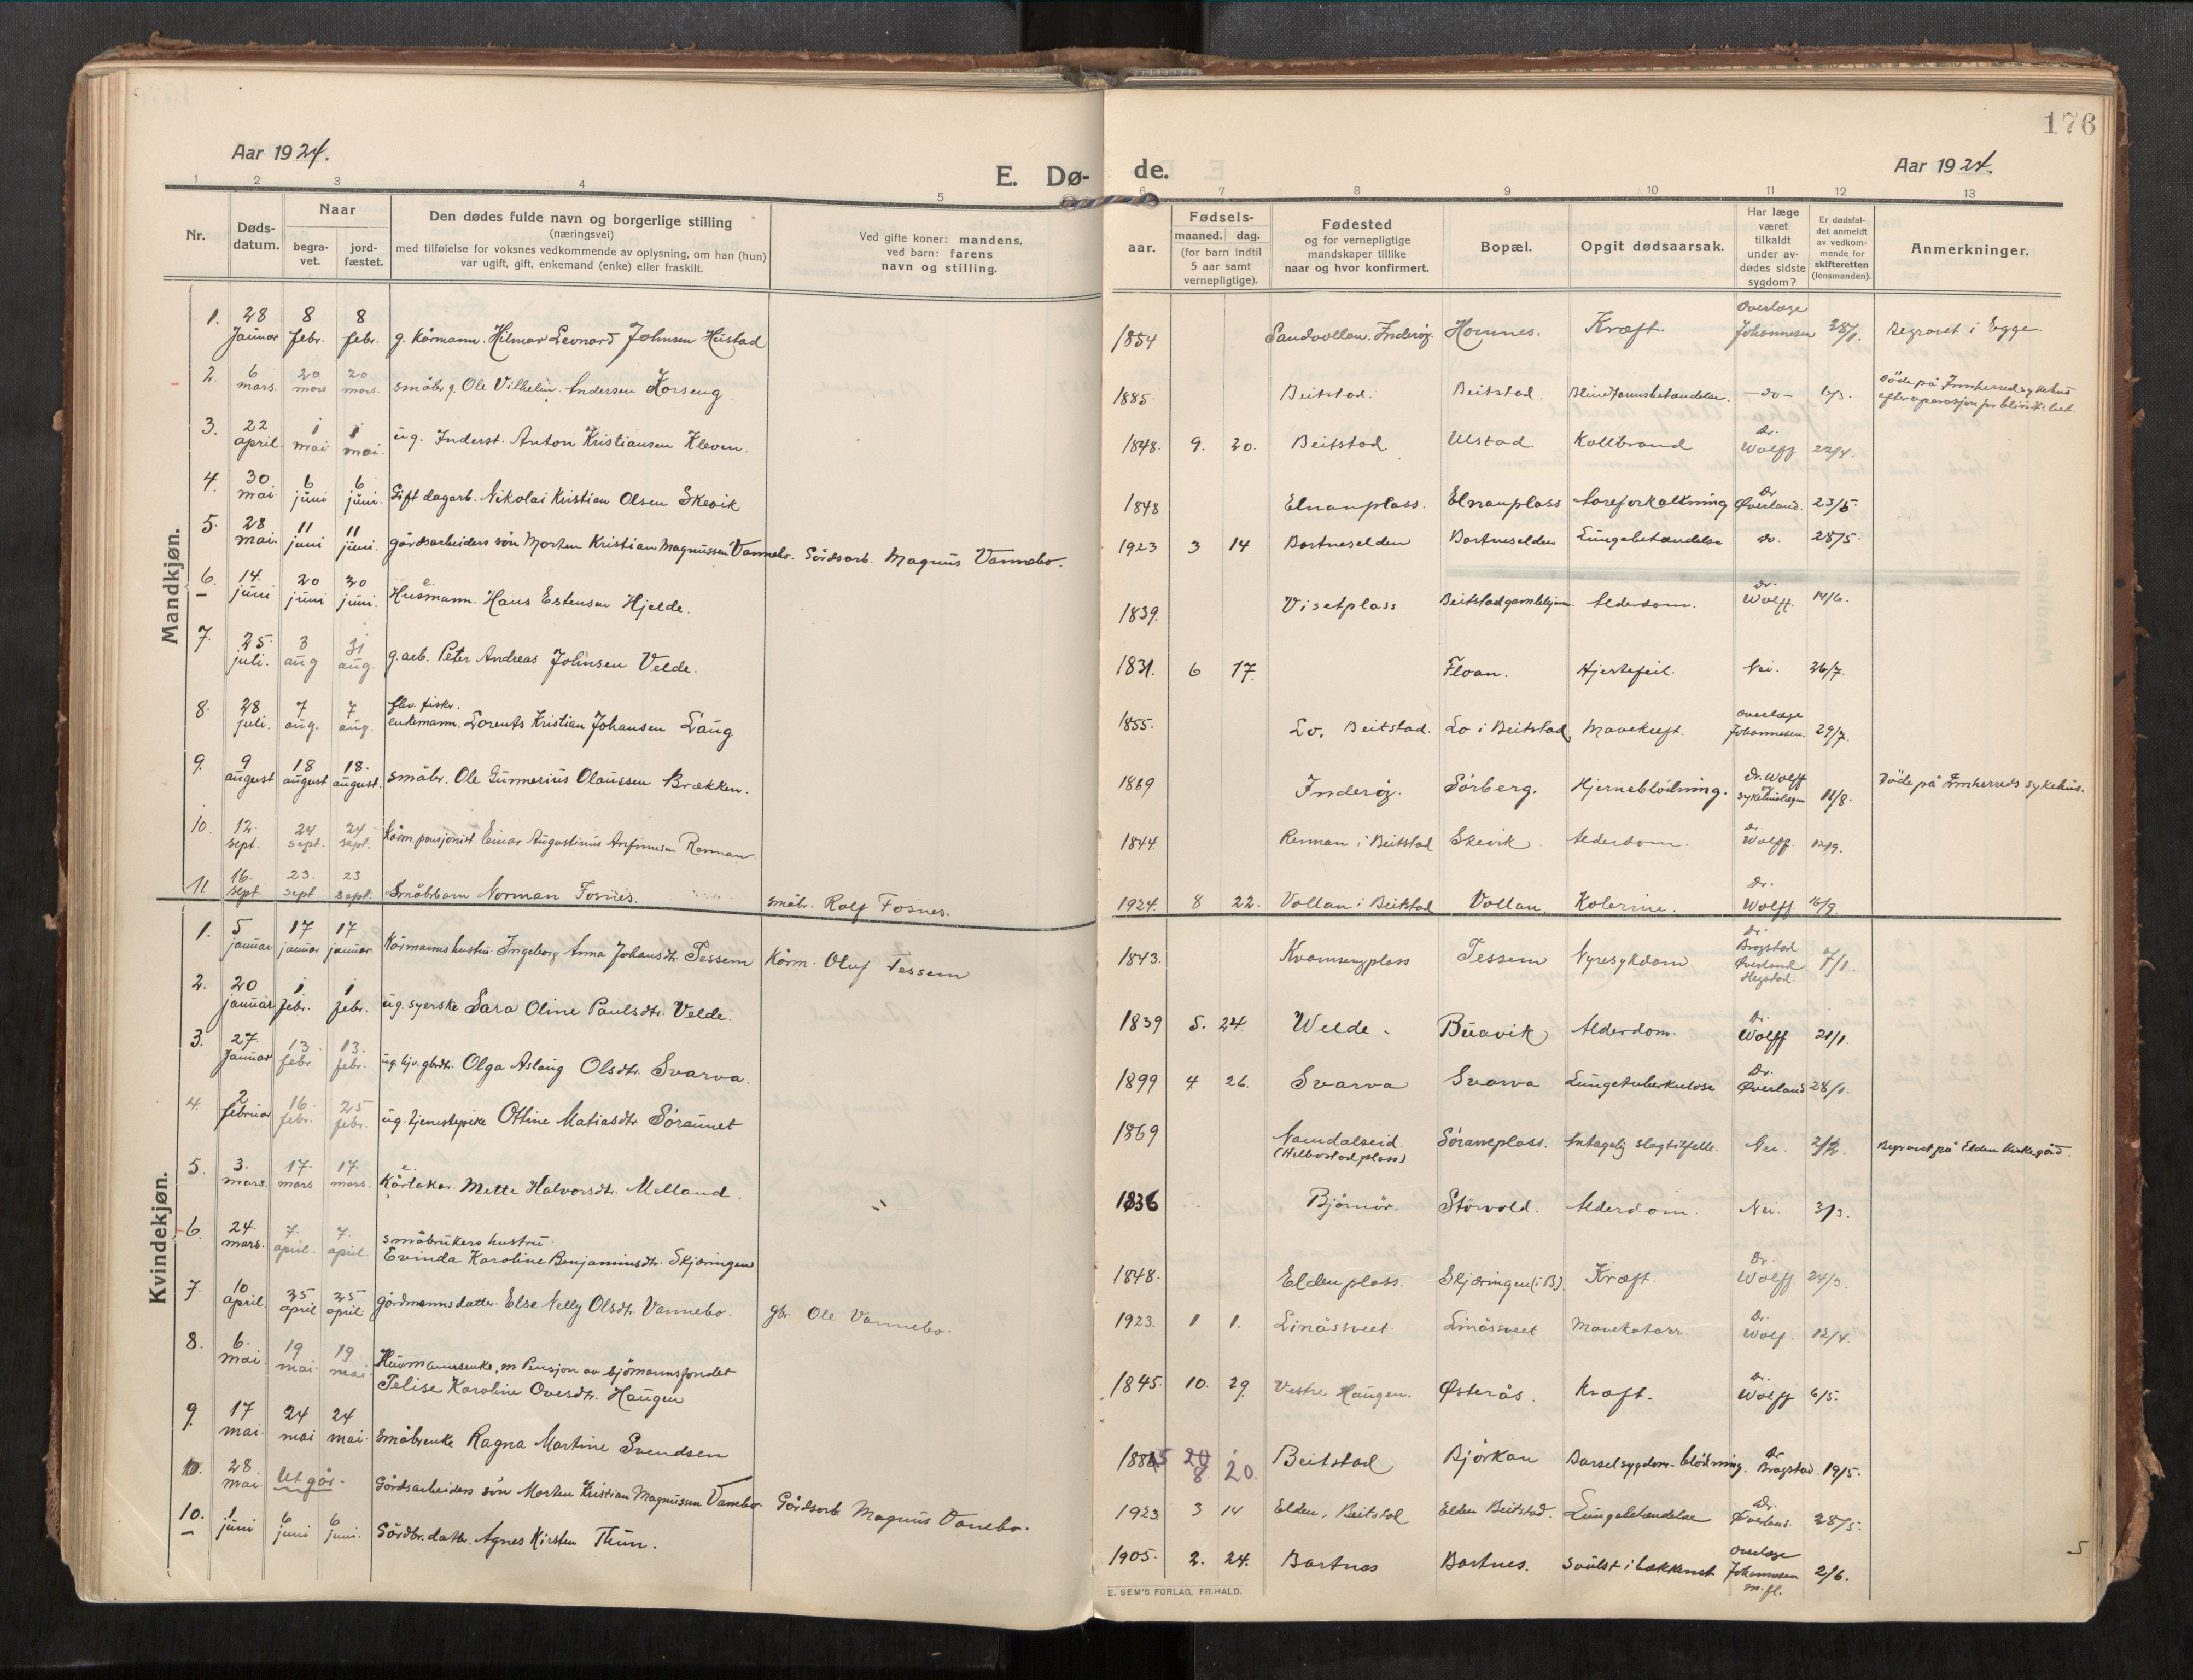 176
Aar 1924.
E. Dø-
de.
Aar 1924.
1 2 3 4 5 6 7 8 9 10 11 12 13
Nr.
Døds-
datum.
Naar
begra-
vet.
jord-
fæstet.
Den dødes fulde navn og borgerlige stilling
(næringsvei)
med tilføielse for voksnes vedkommende av oplysning, om han (hun)
var ugift, gift, enkemand (enke) eller fraskilt.
Ved gifte koner: mandens,
ved barn: farens
navn og stilling.
aar.
Fødsels-
maaned. dag.
(for barn indtil
5 aar samt
vernepligtige).
Fødested
og for vernepligtige
mandskaper tillike
naar og hvor konfirmert.
Bopæl.
Opgit dødsaarsak.
Har læge
været
tilkaldt
under av-
dødes sidste
sygdom?
Er dødsfal-
det anmeldt
av vedkom-
mende for
skifteretten
(lensmanden).
Anmerkninger.
Mandkjøn.
1. 28 Januar 8 febr. 8 febr. g. Kårmann. Hilmar Leonard Johnsen Hustad 1854 Sandvollan. Inderøy. Homnes. Kræft. Overlæge Johannesen 28/1. Begravet i Egge.
2. 6 mars. 20 mars 20 mars. småbr g. Ole Vilhelm Andersen Korseng. 1885. Beitstad. Beitstad. Blindtarmsbetændelse. -do- 6/3. Döde på Innherred sykehus efter operasjon for blindt. bet.
3. 22 april. 1 mai 1 mai. ug. Inderst. Anton Kristiansen Kleven. 1848. 9. 20. Beitstad Ulstad. Koldbrand Dr. Wolff 22/4.
4. 30 mai 6 juni 6 juni. Gift dagarb. Nikolai Kristian Olsen Skevik 1848 Elnanplass. Elnanplass Åreforkalkning Dr Øverland. 23/5.
5. 28 mai. 11 juni 11 juni. gårdsarbeiders sön Morten Kristian Magnussen Vannebo. Gårdsarb. Magnus Vannebo. 1923 3 14 Bartneselden Bartneselden Lungebetændelse do. 28/5.
6. 14. juni 20 juni 20 juni. e. Husmann. Hans Estensen Hjelde. 1839. Visetplass Beitstad gamlehjem. Alderdom. Dr. Wolff. 14/6.
7. 25. juli. 3 aug 31 aug. g. arb. Peter Andreas Johnsen Velde. 1831. 6 17. Floan. Hjertefeil. Nei. 26/7.
8. 28 juli. 7 aug. 7 aug. fhv. fisker. enkemann. Lorents Kristian Johansen Laug 1855. Lo. Beitstad. Lo i Beitstad Mavekræft. Overlæge Johannesen. 29/7.
9. 9 august 18 august 18. august. småbr. Ole Gunnerius Olaussen Brækken. 1869 Inderøy. Sörberg. Hjerneblödning. Dr. Wolff og sykehuslægen 11/8. Döde på Innherreds sykehus.
10. 12. sept. 24 sept. 24 sept. Kårm. pensjonist Einar Augustinus Arnfinnsen Renman. 1844. Renman i Beitstad Skevik. Alderdom. Dr. Wolff. 12/9.
11 16. sept. 23. sept 23 sept. Småbbarn Norman Fosnes. småbr. Rolf Fosnes. 1924. 8 22. Vollan i Beitstad Vollan. Kolerine. Dr. Wolff 16/9.
Kvindekjøn.
1. 5 januar 17 januar 17 januar Kårmanns hustru. Ingeborg Anna Johansdtr. Tessem Kårm. Oluf Tessem 1843. Kvamsengplass Tessem Nyresykdom Dr. Bragstad Øverland Hegstad. 7/1.
2. 20 januar 1 febr. 1 febr. ug. syerske Sara Oline Paulsdtr. Velde. 1839 5. 24. Welde. Buavik Alderdom. Dr. Wolff 21/1.
3. 27. Januar 13 febr 13. febr. ug. hjv. gbrdtr. Olga Aslaug Olsdtr. Svarva. 1899 4 26. Svarva Svarva Lungetuberkulose Dr. Øverland 28/1.
4. 2 februar 16. febr. 25 febr. ug. tjenestepike Ottine Matiasdtr. Söraunet 1869 Namdalseid. (Helbostadplass) Söraneplass. Antagelig slagtilfelle. Nei. 2/2. Begravet på Elden kirkegård.
5. 3. mars. 17. mars 17. mars. e. Kårtaker. Mette Halvorsdtr. Melland. 1836 Bjørnör. Storvold. Alderdom. Nei. 3/3.
6. 24. mars. 7. april. 7. april. småbrukers hustru. Evinda Karoline Benjaminsdtr. Skjæringen 1848. Eldenplass. Skjæringen (i B). Kræft. Dr. Wolff 24/3.
7. 10 april 25 april 25 april gårdmanns datter. Else Nelly Olsdtr. Vannebo. gbr. Ole Vannebo. 1923. 1 1. Linåssveet Linåssveet Mavekatarr. Dr. Wolf. 12/4.
8. 6. mai. 19 mai. 19 mai. Husmannsenke, m Pensjon av Sjömannsfondet Telise Karoline Ovesdtr. Haugen 1845. 10. 29. Vestre Haugen. Østerås. Kræft. Dr. Wolff 6/5.
9. 17 mai. 24 mai 24 mai. småbrenke Ragna Martine Svendsen 1885 20 8 20. Beitstad Björkan Barselsygdom-blödning. Dr. Bragstad. 19/5.
10. 28 mai. Utgår. Gårdsarbeiders sön Morten Kristian Magnussen Vannebo. Gårdsarb. Magnus Vanebo. 1923 3 14 Elden, Beitstad Elden Beitstad. Lungebetændelse Dr. Øverland. 28/5.
10. 1 juni 6 juni 6 juni. Gårdbr. datter. Agnes Kirsten Thun. 1905. 2. 24. Bartnes Bartnes. svulst i bækkenet Overlæge Johannesen m. fl. 2/6.
E. SEM'S FORLAG, FR.HALD.